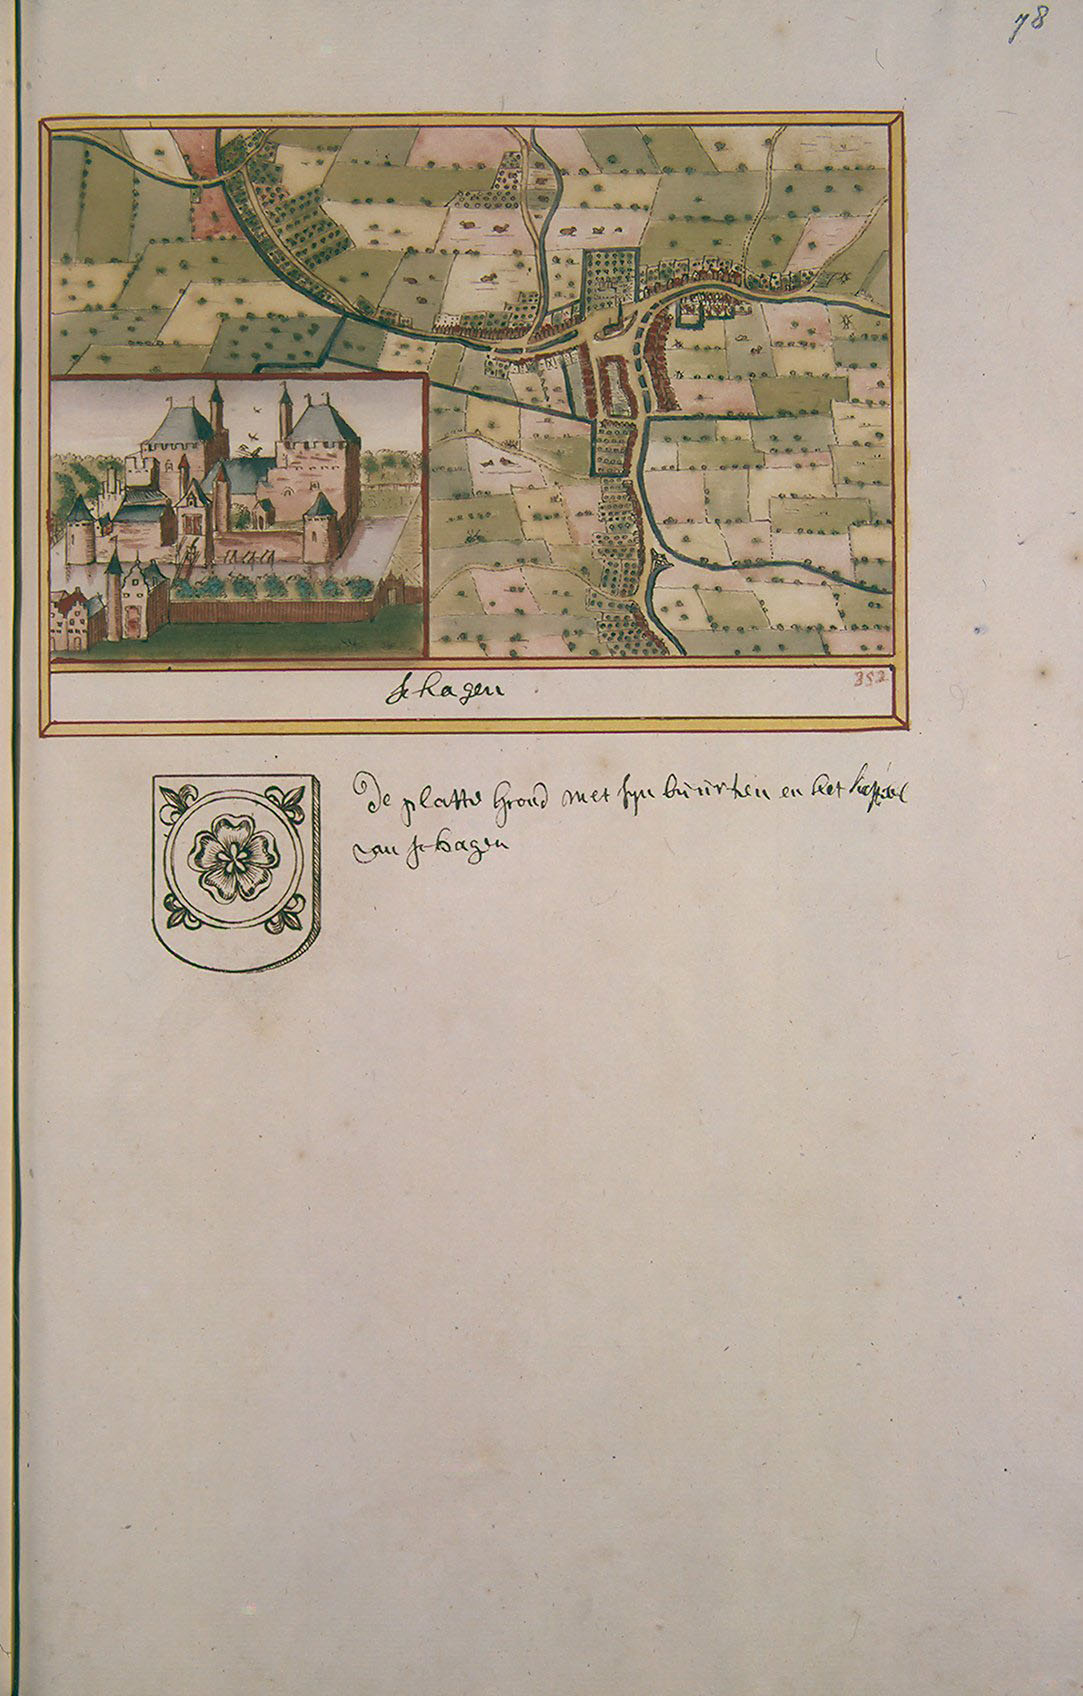 78
Schagen
352
De platte Grond met syn buurten en het kasteel
van Schagen